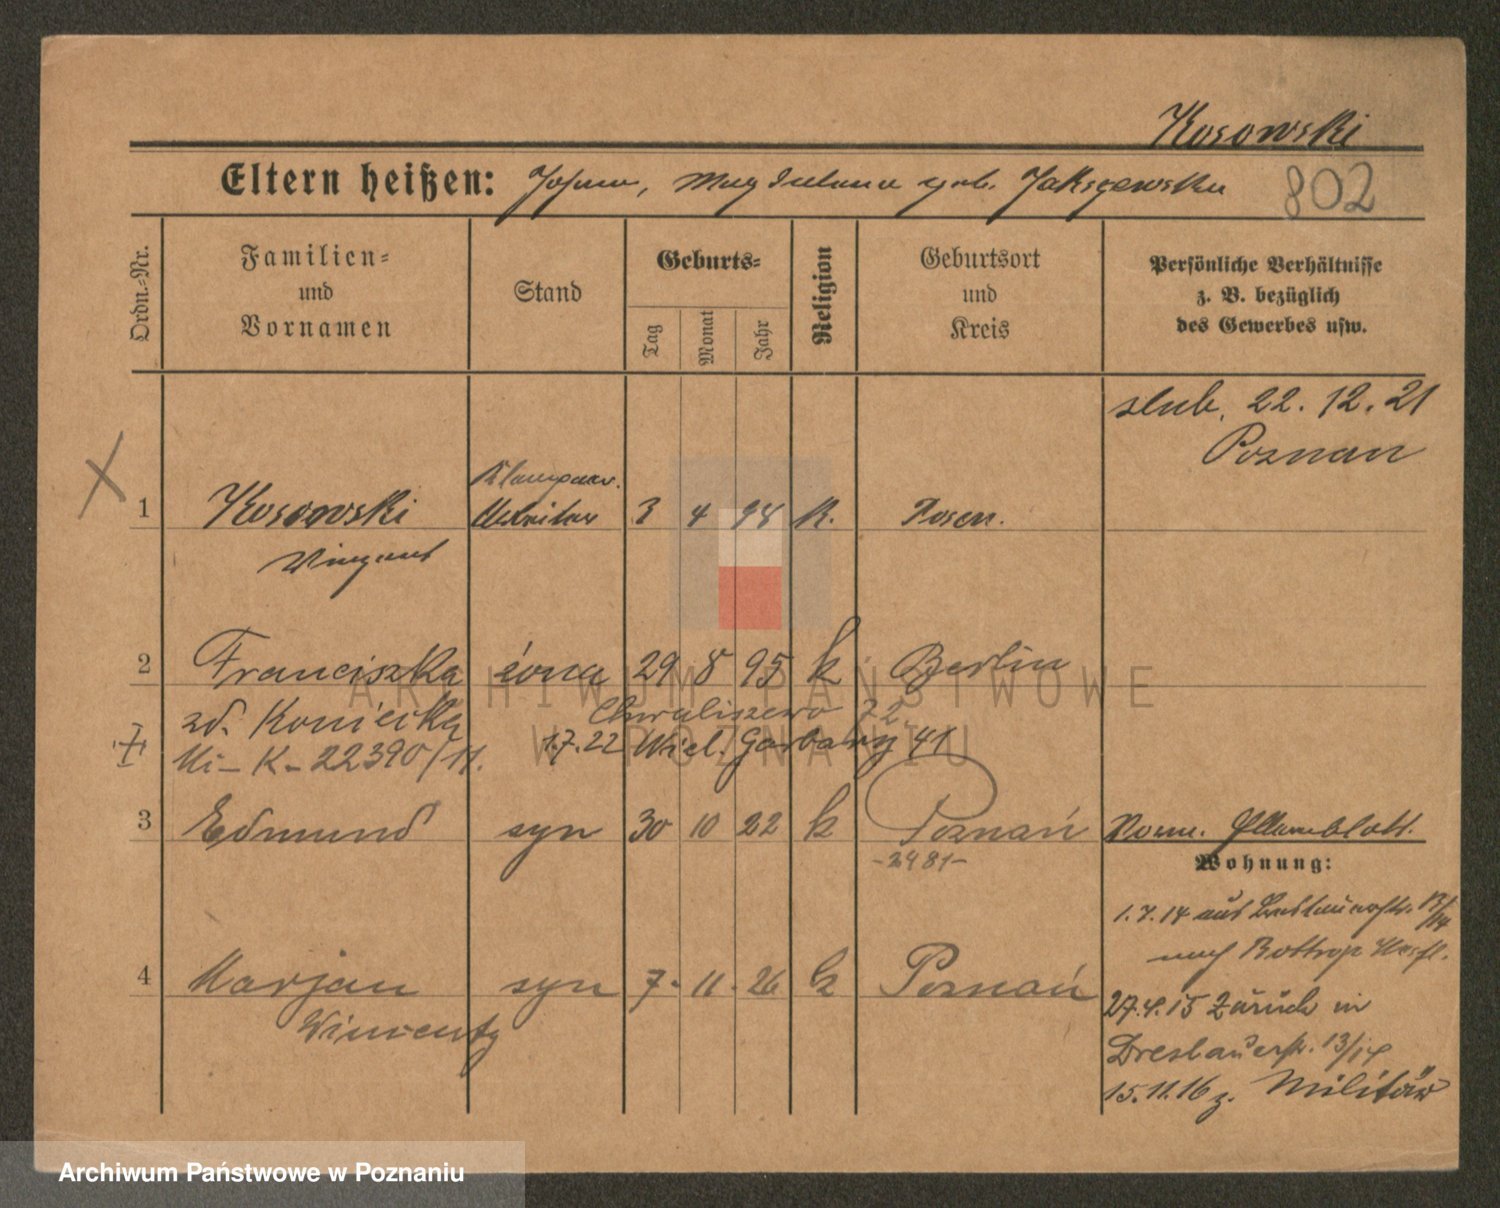 Kosowski
Eltern heißen: Johann, Magdalena geb. Jakszewska 802
Ordn.-Nr.
Familien-
und
Vornamen
Stand
Geburts-
Tag
Monat
Jahr
Religion
Geburtsort
und
Kreis
Persönliche Verhältnisse
z. B. bezüglich
des Gewerbes usw.
slub. 22. 12. 21
Poznan
Klempner.
1 Kosowski 3 4 98 K. Posen.
Vinzent
2 Franciszka żona 29 8 95 k Berlin
zd. Koniecka Chwaliszewo 72
Mi-K-22390/11. 1.7.22 Wiel. Garbary 41
3 Edmund syn 30 10 22 k Poznań
-2481-
Wohnung:
1.7.14 aus Breslauerstr. 13/14
nach Bottrop Westf.
4 Marjan syn 7. 11. 26 k Poznań
Wincenty
27.4.15 zurück in
Breslauerstr. 13/14
15.11.16 z. Militär
ARCHIWUM PAŃSTWOWE
W POZNANIU
Archiwum Państwowe w Poznaniu